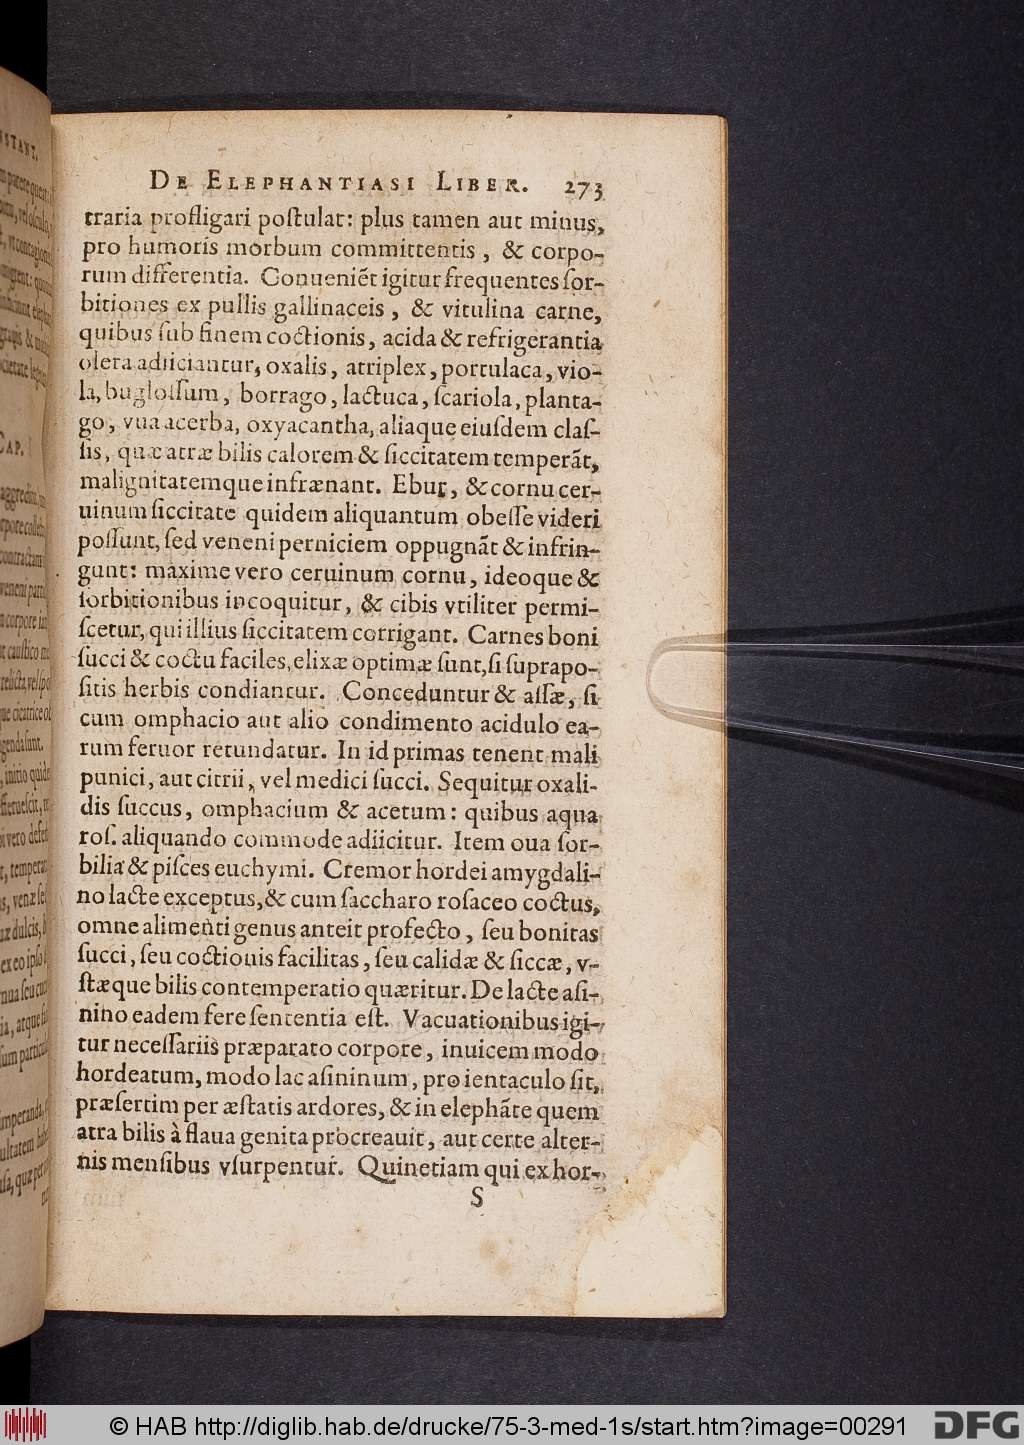 DE ELEPHANTIASI LIBER. 273
traria profligari poſtulat: plus tamen aut minus,
pro humoris morbum committentis, & corpo-
rum differentia. Conueniẽt igitur frequentes ſor-
bitiones ex pullis gallinaceis, & vitulina carne,
quibus ſub finem coctionis, acida & refrigerantia
olera adiiciantur, oxalis, atriplex, portulaca, vio-
la, bugloſſum, borrago, lactuca, ſcariola, planta-
go, vua acerba, oxyacantha, aliaque eiuſdem claſ-
ſis, quæ atræ bilis calorem & ſiccitatem temperãt,
malignitatemque infrænant. Ebur, & cornu cer-
uinum ſiccitate quidem aliquantum obeſſe videri
poſſunt, ſed veneni perniciem oppugnãt & infrin-
gunt: maxime vero ceruinum cornu, ideoque &
ſorbitionibus incoquitur, & cibis vtiliter permi-
ſcetur, qui illius ſiccitatem corrigant. Carnes boni
ſucci & coctu faciles, elixæ optimæ ſunt, ſi ſuprapo-
ſitis herbis condiantur. Conceduntur & aſſæ, ſi
cum omphacio aut alio condimento acidulo ea-
rum feruor retundatur. In id primas tenent mali
punici, aut citrii, vel medici ſucci. Sequitur oxali-
dis ſuccus, omphacium & acetum: quibus aqua
roſ. aliquando commode adiicitur. Item oua ſor-
bilia & piſces euchymi. Cremor hordei amygdali-
no lacte exceptus, & cum ſaccharo roſaceo coctus,
omne alimenti genus anteit profecto, ſeu bonitas
ſucci, ſeu coctionis facilitas, ſeu calidæ & ſiccæ, v-
ſtæque bilis contemperatio quæritur. De lacte aſi-
nino eadem fere ſententia eſt. Vacuationibus igi-
tur neceſſariis præparato corpore, inuicem modo
hordeatum, modo lac aſininum, pro ientaculo ſit,
præſertim per æſtatis ardores, & in elephãte quem
atra bilis à flaua genita procreauit, aut certe alter-
nis menſibus vſurpentur. Quinetiam qui ex hor-
S
© HAB http://diglib.hab.de/drucke/75-3-med-1s/start.htm?image=00291
DFG